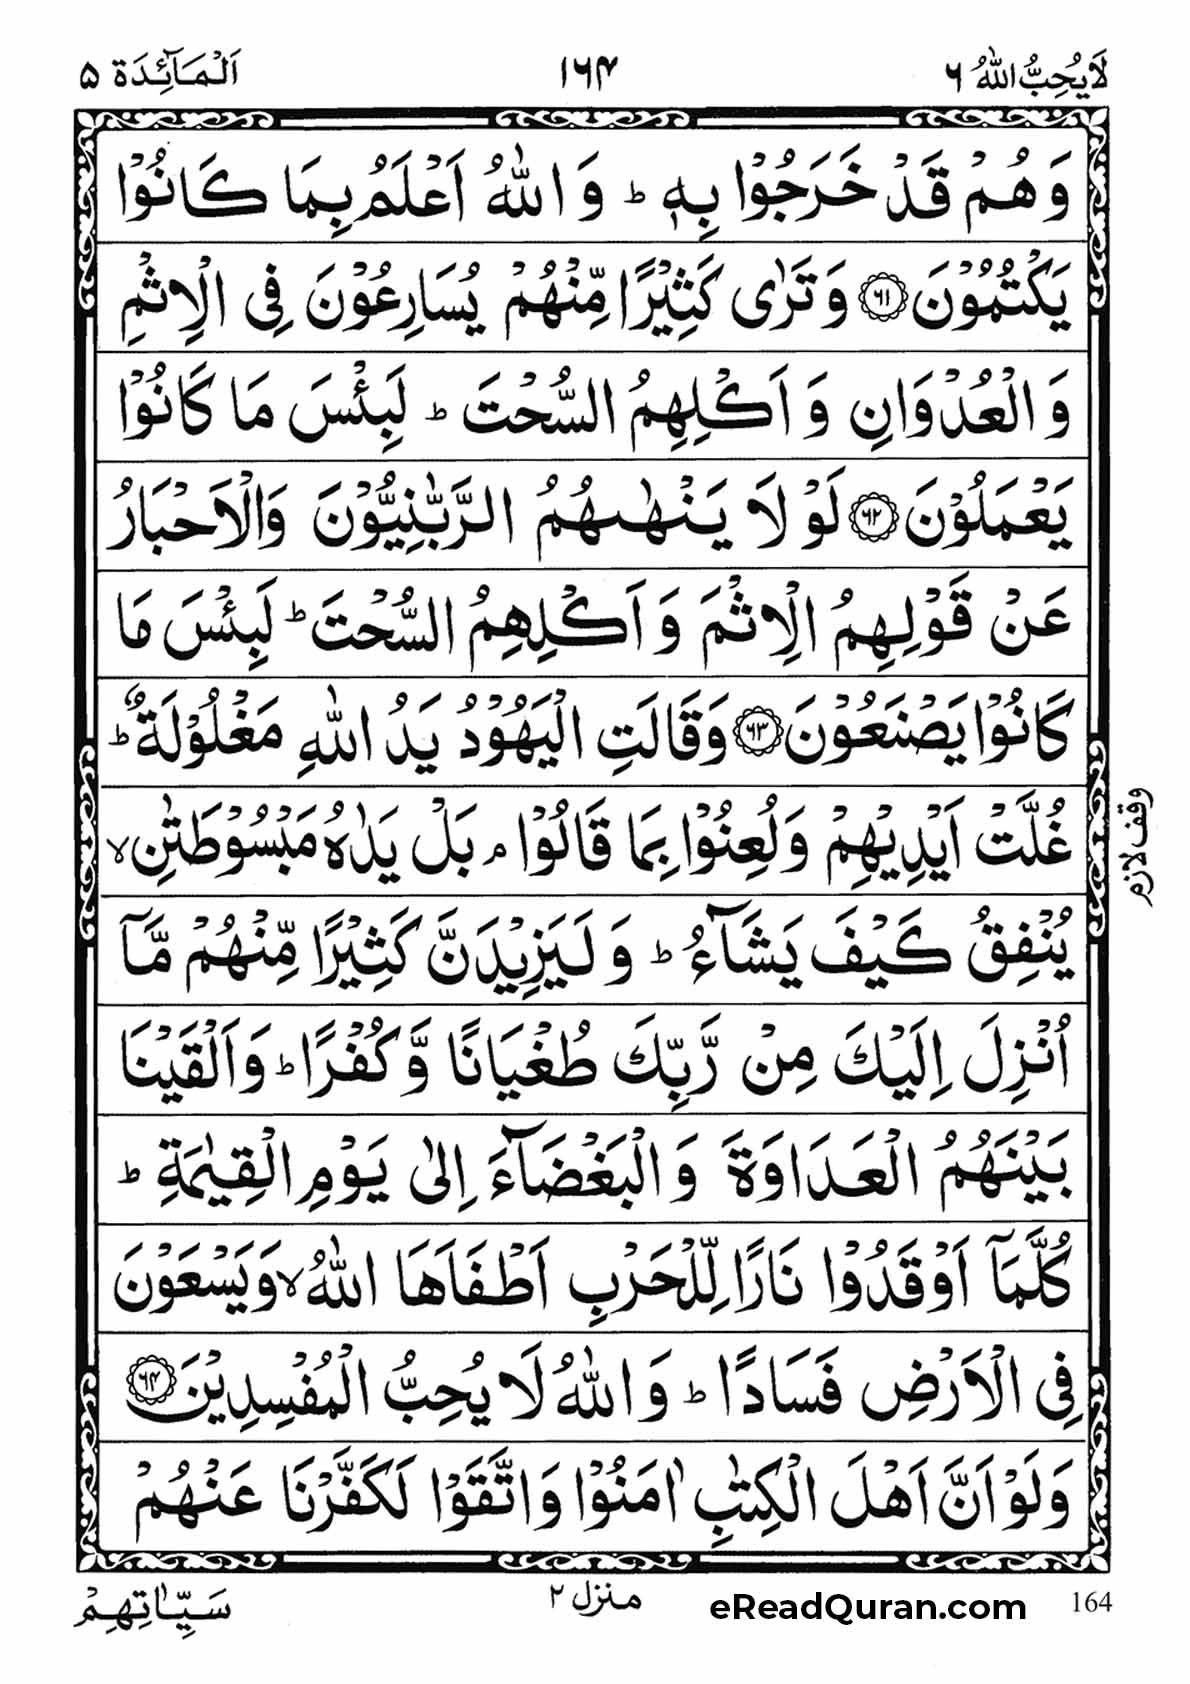 لَا يُحِبُّ اللّٰهُ ٦
١٦٤
اَلْمَآئِدَة ٥
وَ هُمْ قَدْ خَرَجُوْا بِهٖ ؕ وَ اللّٰهُ اَعْلَمُ بِمَا كَانُوْا
يَكْتُمُوْنَ ٦١ وَ تَرٰى كَثِيْرًا مِّنْهُمْ يُسَارِعُوْنَ فِى الْاِثْمِ
وَ الْعُدْوَانِ وَ اَكْلِهِمُ السُّحْتَ ؕ لَبِئْسَ مَا كَانُوْا
يَعْمَلُوْنَ ٦٢ لَوْ لَا يَنْهٰىهُمُ الرَّبّٰنِيُّوْنَ وَالْاَحْبَارُ
عَنْ قَوْلِهِمُ الْاِثْمَ وَ اَكْلِهِمُ السُّحْتَ ؕ لَبِئْسَ مَا
كَانُوْا يَصْنَعُوْنَ ٦٣ وَقَالَتِ الْيَهُوْدُ يَدُ اللّٰهِ مَغْلُوْلَةٌ ؕ
غُلَّتْ اَيْدِيْهِمْ وَ لُعِنُوْا بِمَا قَالُوْا ۘ بَلْ يَدٰهُ مَبْسُوْطَتٰنِ ۙ
يُنْفِقُ كَيْفَ يَشَآءُ ؕ وَ لَيَزِيْدَنَّ كَثِيْرًا مِّنْهُمْ مَّاۤ
اُنْزِلَ اِلَيْكَ مِنْ رَّبِّكَ طُغْيَانًا وَّ كُفْرًا ؕ وَ اَلْقَيْنَا
بَيْنَهُمُ الْعَدَاوَةَ وَ الْبَغْضَآءَ اِلٰى يَوْمِ الْقِيٰمَةِ ؕ
كُلَّمَاۤ اَوْقَدُوْا نَارًا لِّلْحَرْبِ اَطْفَاَهَا اللّٰهُ ۙ وَ يَسْعَوْنَ
فِى الْاَرْضِ فَسَادًا ؕ وَ اللّٰهُ لَا يُحِبُّ الْمُفْسِدِيْنَ ٦٤
وَ لَوْ اَنَّ اَهْلَ الْكِتٰبِ اٰمَنُوْا وَ اتَّقَوْا لَكَفَّرْنَا عَنْهُمْ
وقف لازم
سَيِّاٰتِهِمْ
منزل ٢
eReadQuran.com
164